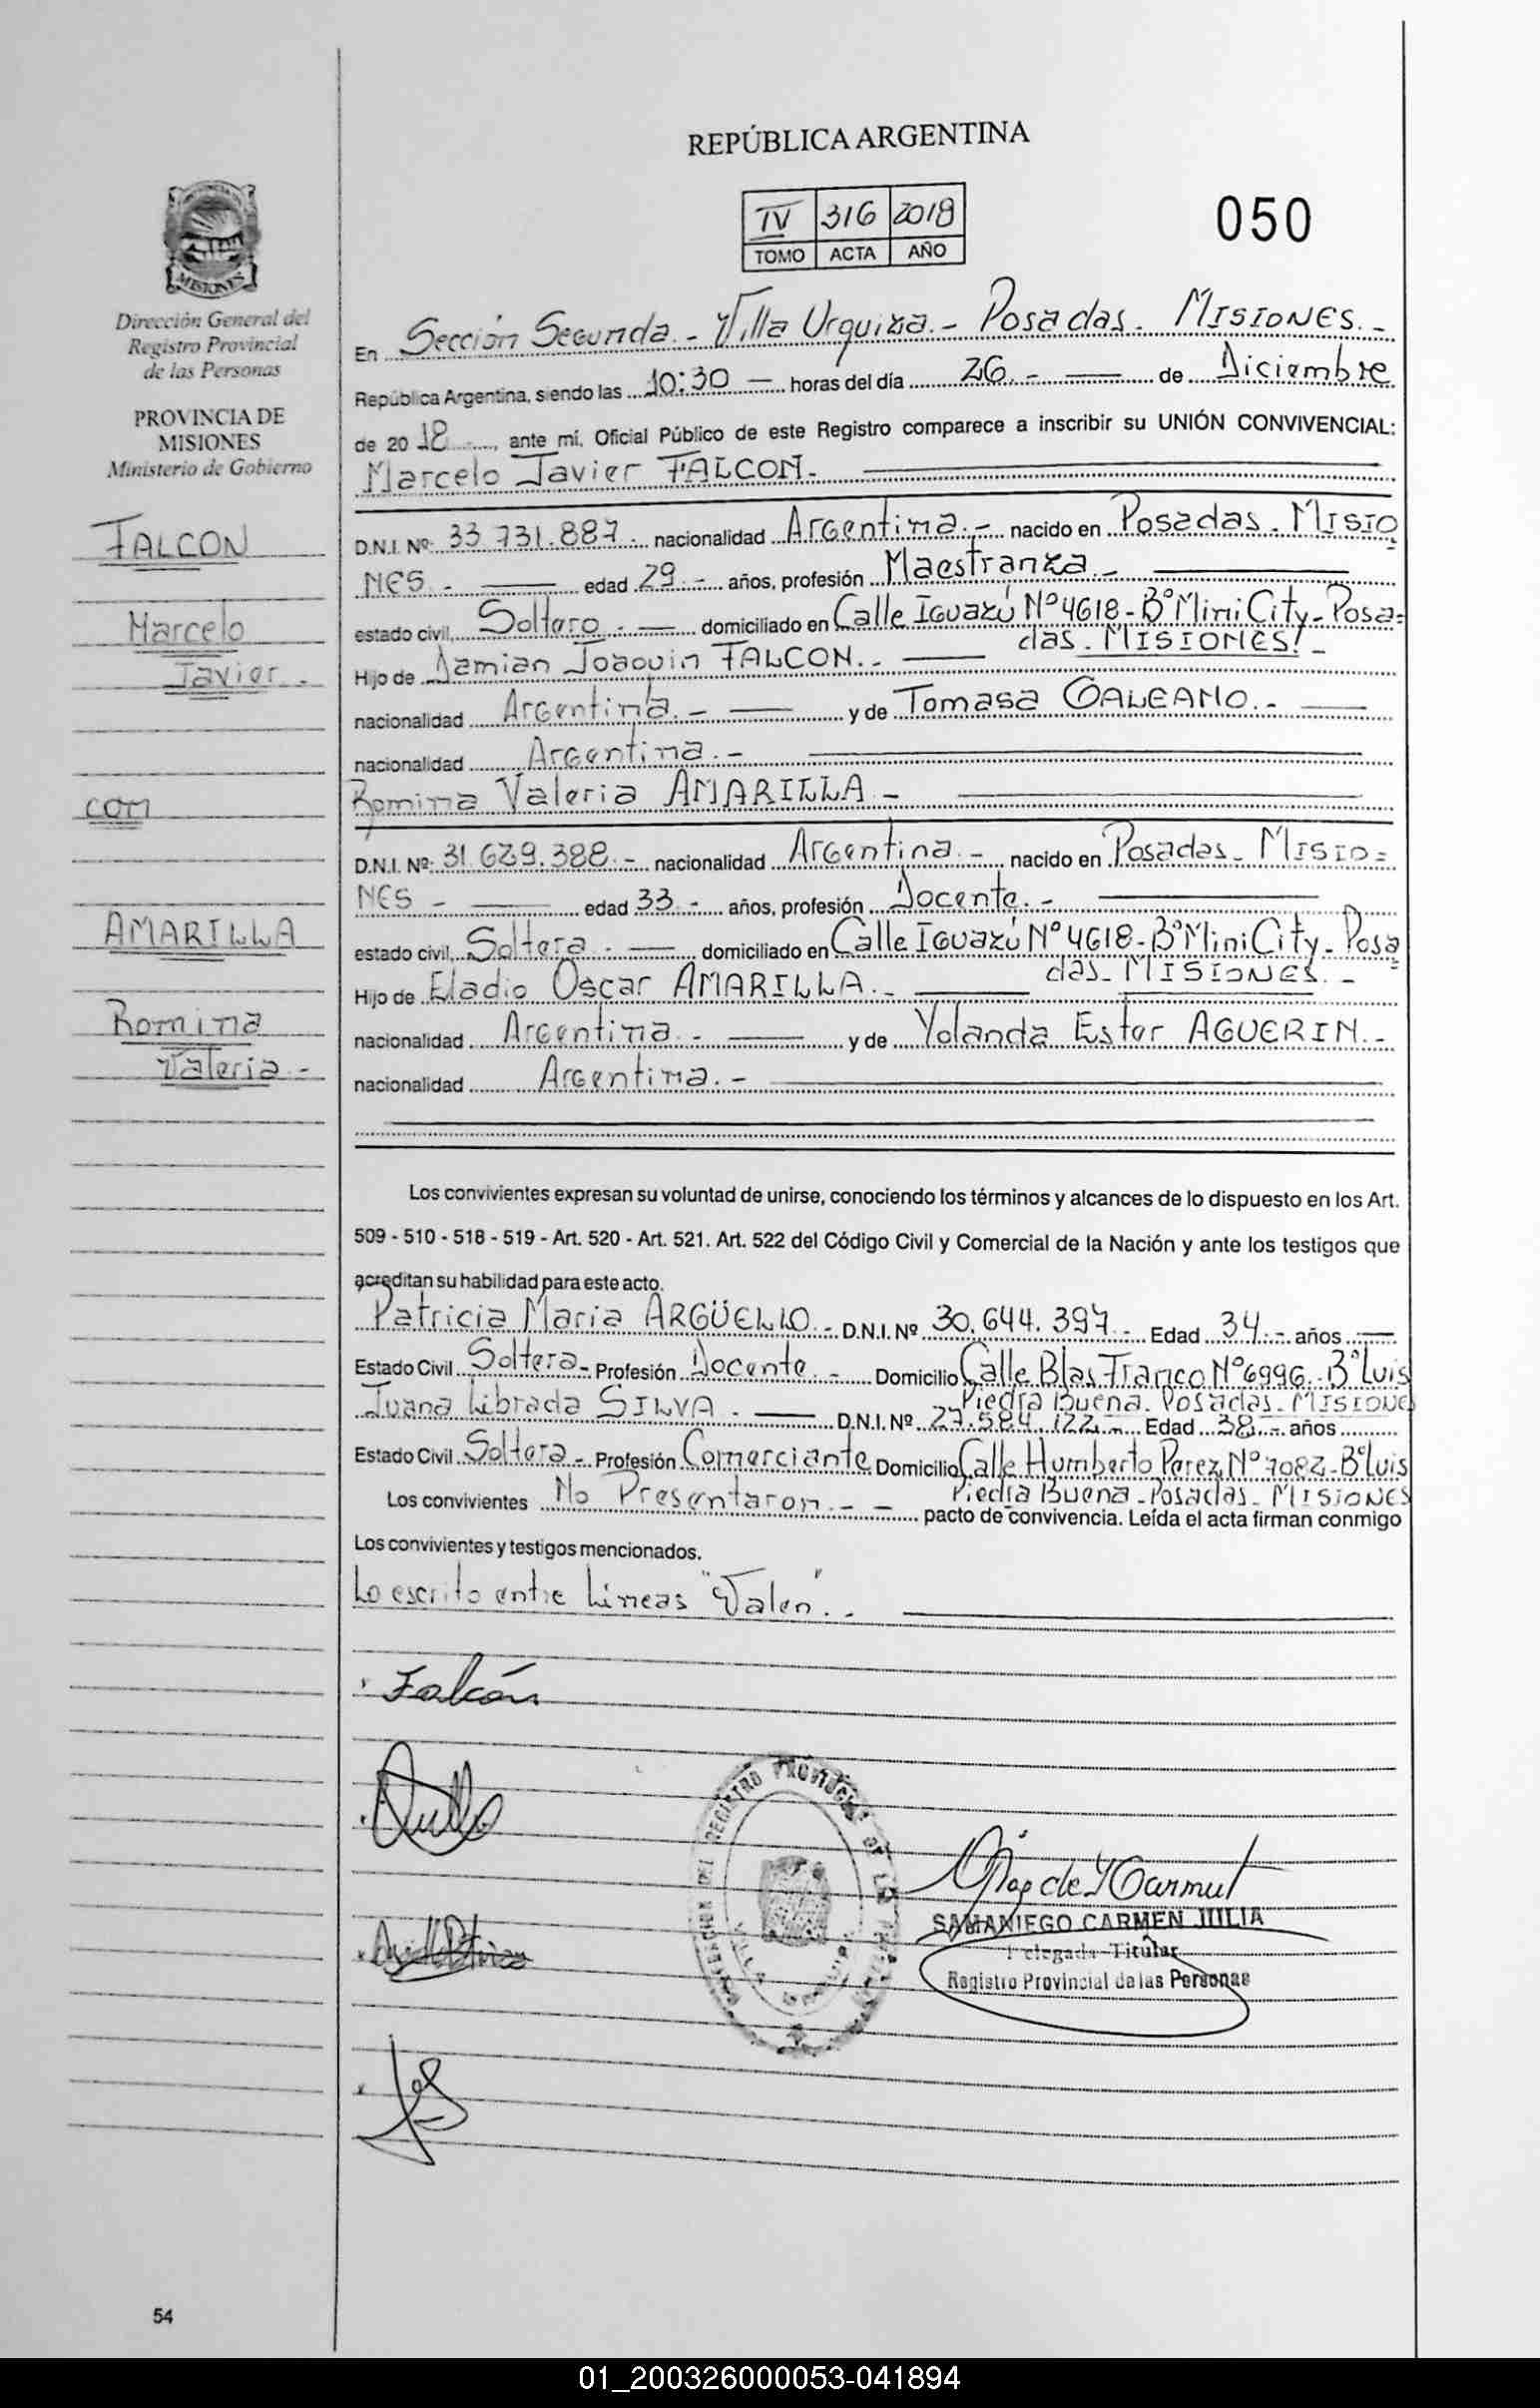 REPÚBLICA ARGENTINA
IV 316 2018
TOMO ACTA AÑO
050
MISIONES
Dirección General del
Registro Provincial
de las Personas
PROVINCIA DE
MISIONES
Ministerio de Gobierno
FALCON
Marcelo
Javier.-
con
AMARILLA
Romina
Valeria.-
En Sección Segunda.- Villa Urquiza.- Posadas. Misiones.-
República Argentina, siendo las 10:30 — horas del día 26.- — de Diciembre
de 2018 -, ante mí, Oficial Público de este Registro comparece a inscribir su UNIÓN CONVIVENCIAL:
Marcelo Javier FALCON.-
D.N.I. Nº: 33.731.887.- nacionalidad Argentina.- nacido en Posadas. Misio
nes.- — edad 29.- años, profesión Maestranza.-
estado civil, Soltero.- — domiciliado en Calle Iguazú Nº4618-Bº Mini City-Posa=
das. MISIONES.-
Hijo de Damian Joaquin FALCON.- —
nacionalidad Argentina.- — y de Tomasa GALEANO.- —
nacionalidad Argentina.-
Romina Valeria AMARILLA-
D.N.I. Nº: 31.629.388.- nacionalidad Argentina.- nacido en Posadas- Misio=
nes - — edad 33.- años, profesión Docente.-
estado civil, Soltera.- — domiciliado en Calle Iguazú Nº4618-Bº Mini City- Posa=
das- MISIONES.-
Hijo de Eladio Oscar AMARILLA.- —
nacionalidad Argentina.- — y de Yolanda Ester AGUERIN.-
nacionalidad Argentina.-
Los convivientes expresan su voluntad de unirse, conociendo los términos y alcances de lo dispuesto en los Art.
509 - 510 - 518 - 519 - Art. 520 - Art. 521. Art. 522 del Código Civil y Comercial de la Nación y ante los testigos que
acreditan su habilidad para este acto.
Patricia Maria ARGÜELLO.- D.N.I. Nº 30.644.397.- Edad 34.- años.—
Estado Civil Soltera- Profesión Docente.- Domicilio Calle Blas Franco Nº6996. Bº Luis
Piedra Buena. Posadas. Misiones
Juana Librada SILVA.- — D.N.I. Nº 27.584.122- Edad 38.- años
Estado Civil Soltera- Profesión Comerciante Domicilio Calle Humberto Perez Nº7082-Bº Luis
Piedra Buena-Posadas- MISIONES
Los convivientes No Presentaron.- - pacto de convivencia. Leída el acta firman conmigo
Los convivientes y testigos mencionados.
Lo escrito entre Lineas "Valen".-
Falcón
SAMANIEGO CARMEN JULIA
Delegada Titular
Registro Provincial de las Personas
54
01_200326000053-041894